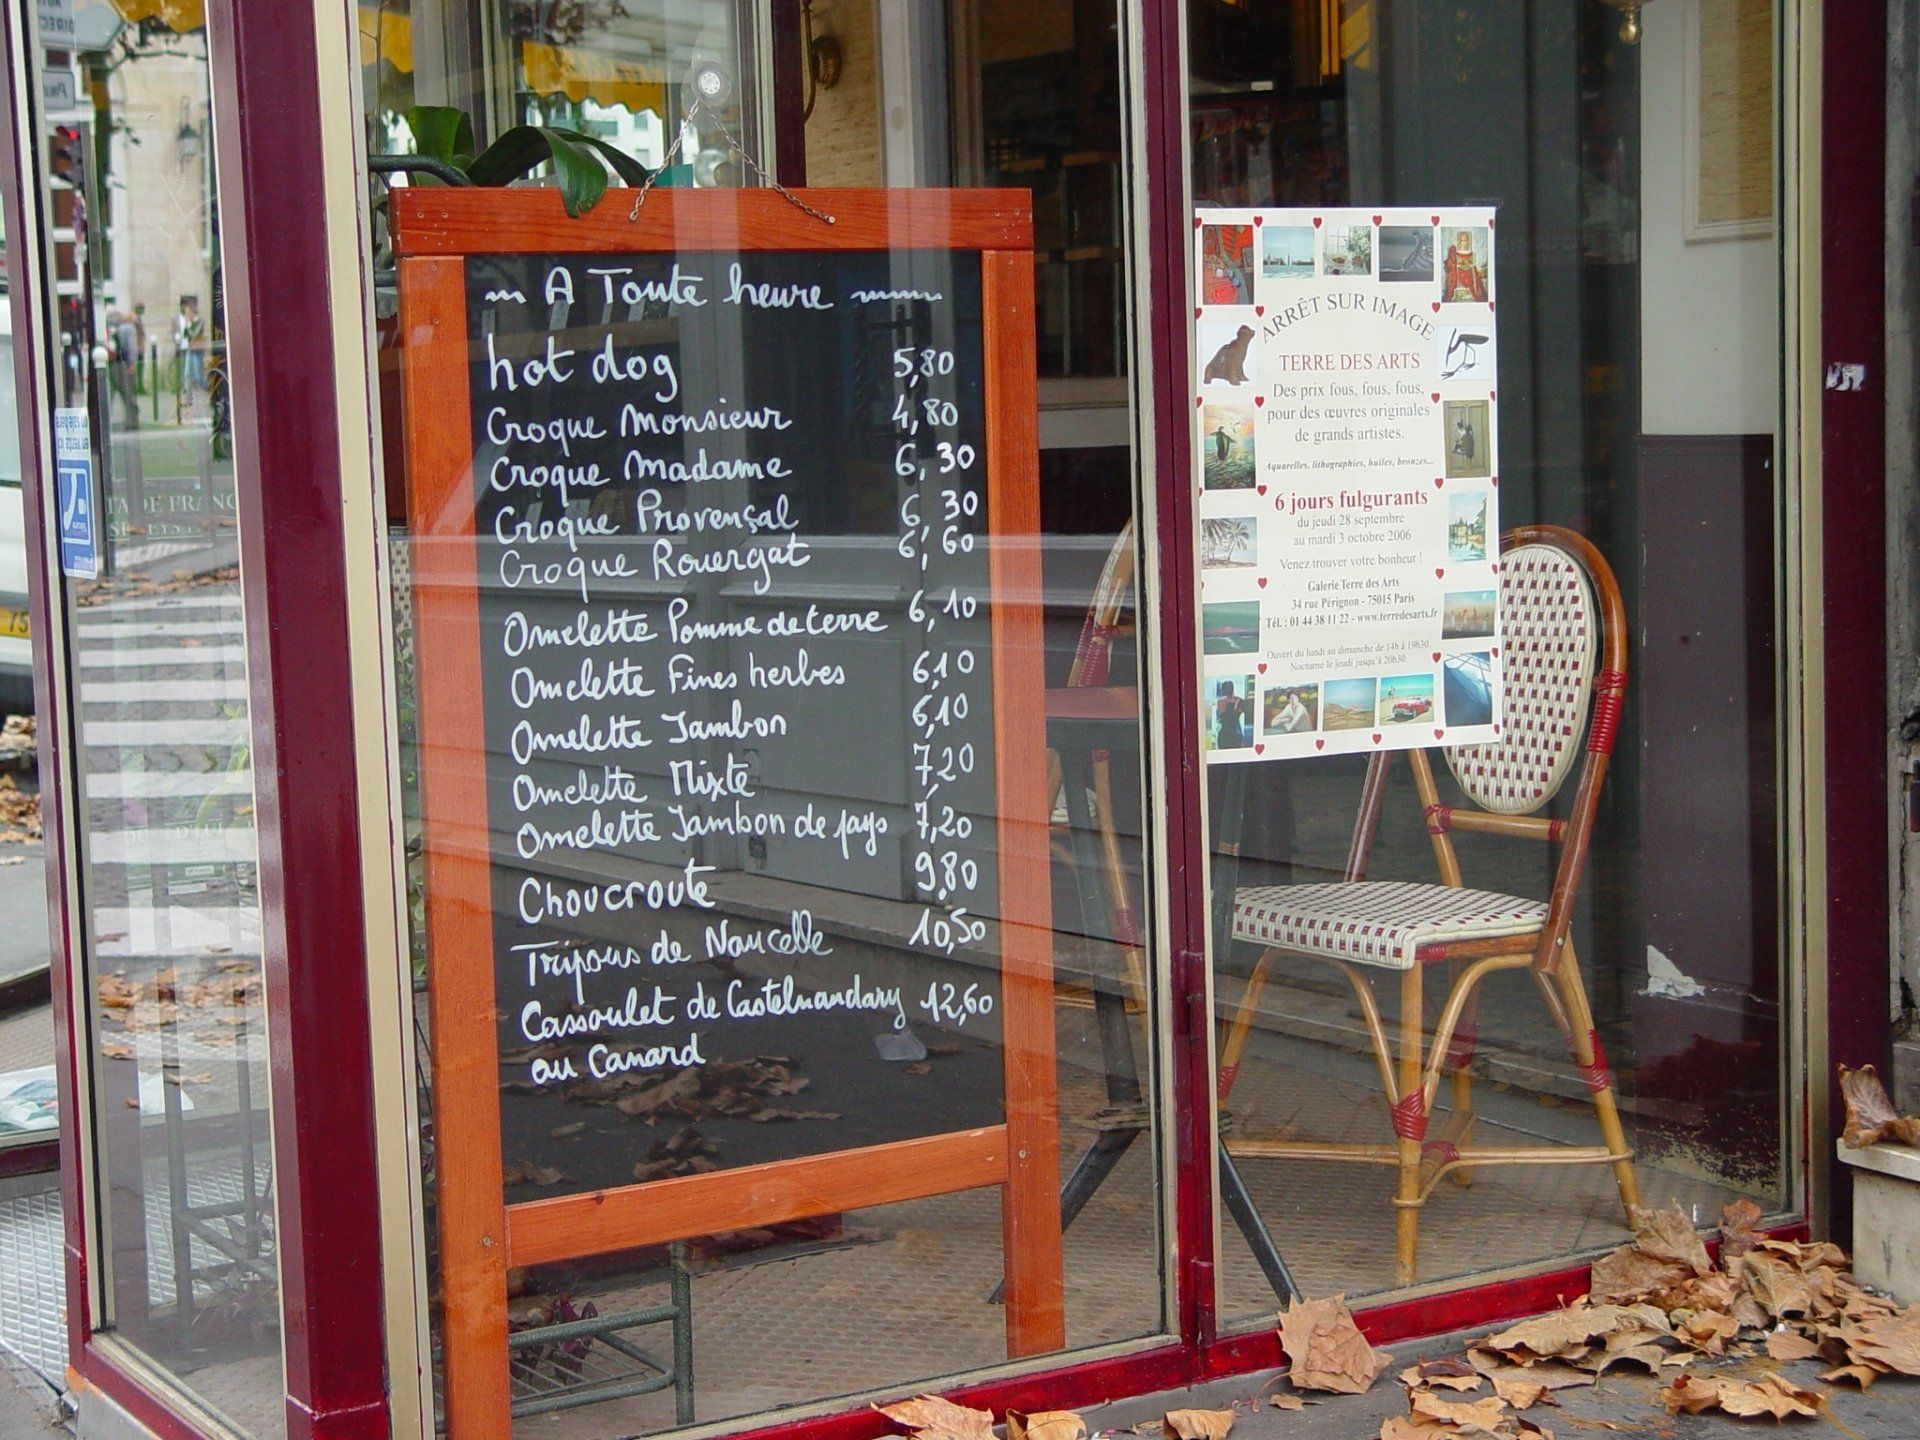 A Toute heure
hot dog 5,80
Croque Monsieur 4,80
Croque Madame 6,30
Croque Provençal 6,30
Croque Rouergat 6,60
Omelette Pomme de terre 6,10
Omelette Fines herbes 6,10
Omelette Jambon 6,10
Omelette Mixte 7,20
Omelette Jambon de pays 7,20
Choucroute 9,80
Tripous de Naucelle 10,50
Cassoulet de Castelnaudary 12,60
au Canard
ARRÊT SUR IMAGE
TERRE DES ARTS
Des prix fous, fous, fous,
pour des œuvres originales
de grands artistes.
Aquarelles, lithographies, huiles, bronzes...
6 jours fulgurants
du jeudi 28 septembre
au mardi 3 octobre 2006
Venez trouver votre bonheur !
Galerie Terre des Arts
34 rue Pérignon - 75015 Paris
Tél. : 01 44 38 11 22 - www.terredesarts.fr
Ouvert du lundi au dimanche de 14h à 19h30.
Nocturne le jeudi jusqu'à 20h30.